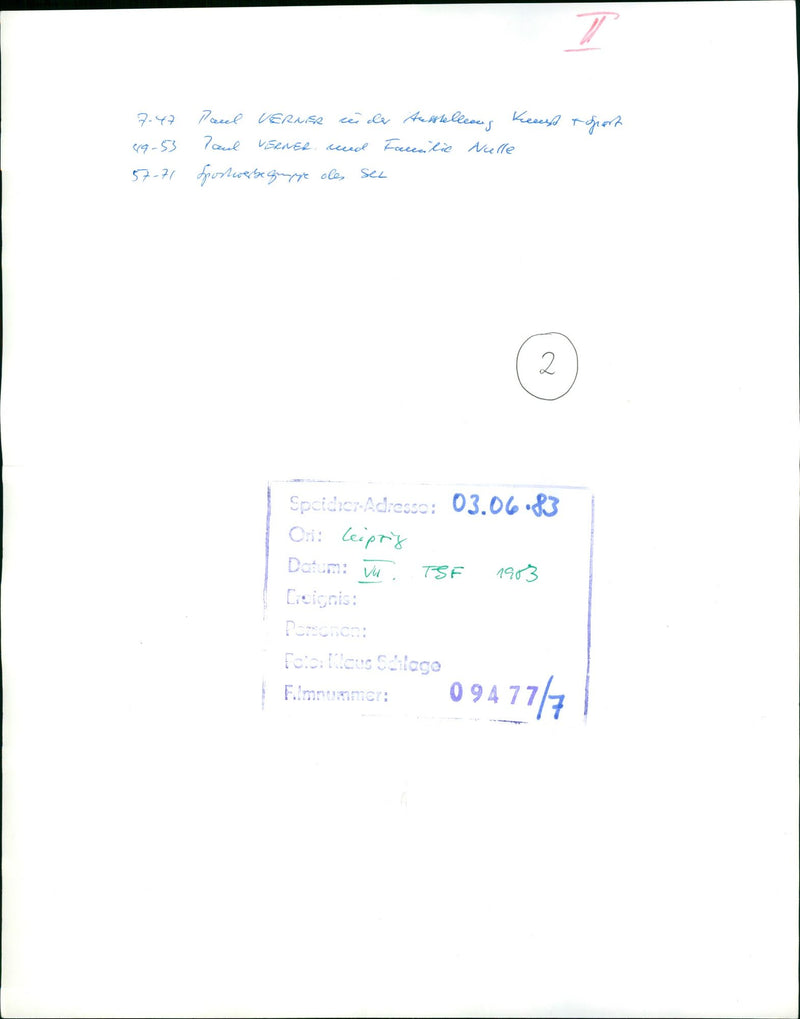 II
7-47 Paul VERNER in der Ausstellung Kunst + Sport
49-53 Paul VERNER und Familie Nulle
57-71 Sportwerbegruppe des
2
Speicher-Adresse: 03.06.83
Ort: Leipzig
Datum: VII. TSF 1983
Ereignis:
Personen:
Foto: Klaus Schlage
Filmnummer: 09477/7